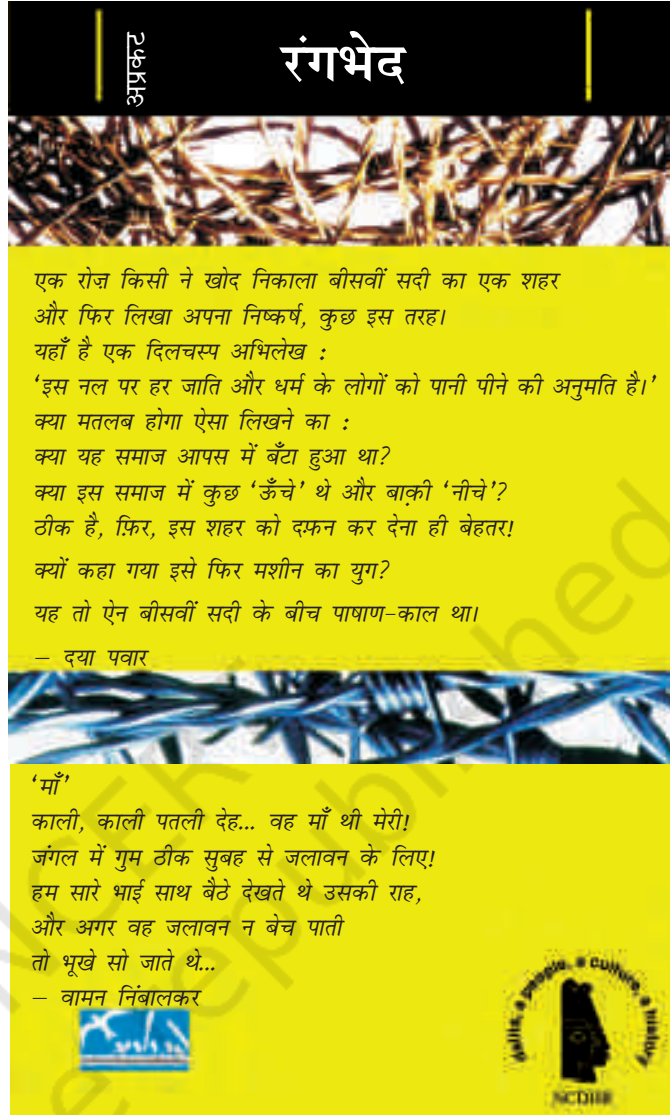 अप्रकट
रंगभेद
एक रोज़ किसी ने खोद निकाला बीसवीं सदी का एक शहर
और फिर लिखा अपना निष्कर्ष, कुछ इस तरह।
यहाँ है एक दिलचस्प अभिलेख :
‘इस नल पर हर जाति और धर्म के लोगों को पानी पीने की अनुमति है।’
क्या मतलब होगा ऐसा लिखने का :
क्या यह समाज आपस में बँटा हुआ था?
क्या इस समाज में कुछ ‘ऊँचे’ थे और बाक़ी ‘नीचे’?
ठीक है, फ़िर, इस शहर को दफ़न कर देना ही बेहतर!
क्यों कहा गया इसे फिर मशीन का युग?
यह तो ऐन बीसवीं सदी के बीच पाषाण-काल था।
– दया पवार
‘माँ’
काली, काली पतली देह... वह माँ थी मेरी!
जंगल में गुम ठीक सुबह से जलावन के लिए!
हम सारे भाई साथ बैठे देखते थे उसकी राह,
और अगर वह जलावन न बेच पाती
तो भूखे सो जाते थे...
– वामन निंबालकर
dalits, a people, a culture, a history
NCDHR